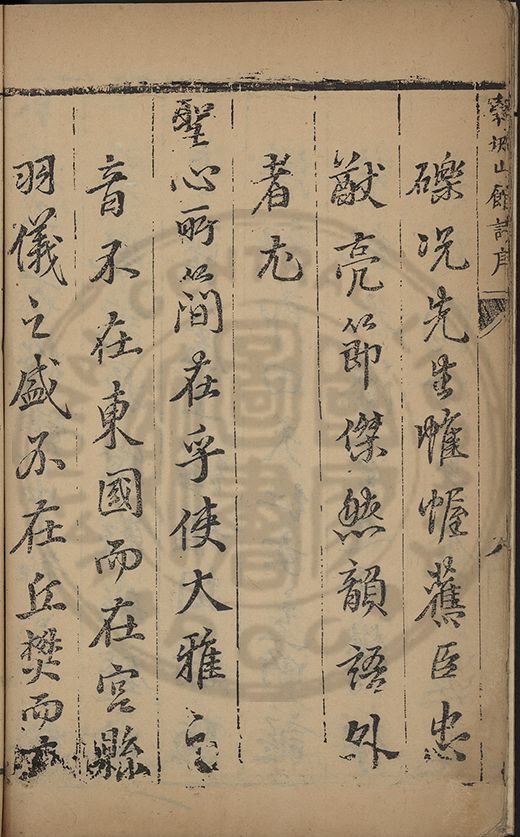 穀城山館詩序
礫况先生帷幄舊臣忠
猷亮節傑然韻語外
者尤
聖心所簡在乎使大雅之
音不在東國而在宮縣
羽儀之盛不在丘樊而